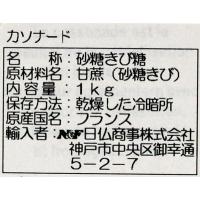 カソナード
名称：砂糖きび糖
原材料名：甘蔗（砂糖きび）
内容量：1kg
保存方法：乾燥した冷暗所
原産国名：フランス
輸入者：NF日仏商事株式会社
神戸市中央区御幸通
5-2-7